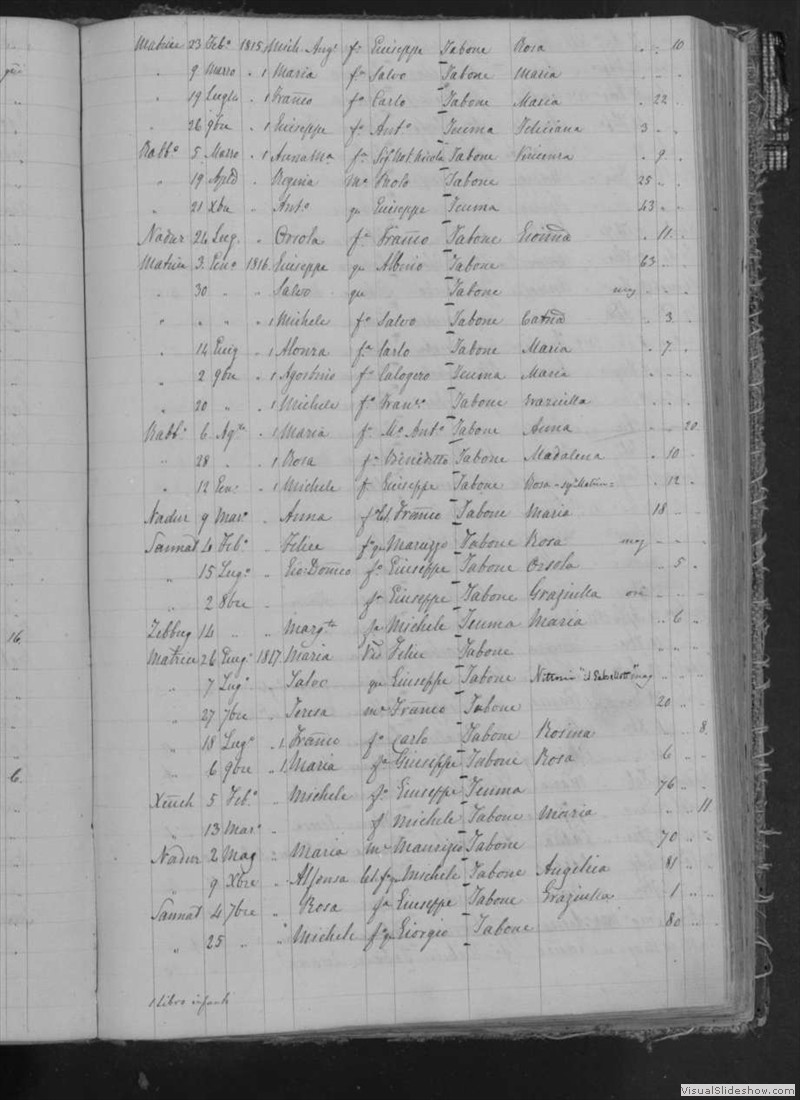 Matrice 23 Feb.o 1815 Mich. Ang.o f.o Giuseppe Tabone Rosa . . 10
" 9 Marzo " 1 Maria f.a Salvo Tabone Maria . . .
" 19 Luglio " 1 Franco f.o Carlo Tabone Maria . 22 .
" 26 9bre " 1 Giuseppe f.o Ant.o Teuma Feliciana 3 . .
Rabb.o 5 Marzo " 1 Anna Ma. f.a Tabone Vincenza . 9 .
" 19 Apld " Regina m.e Paolo Tabone 25 . .
" 21 Xbre " Ant.o qu Giuseppe Teuma 43 . .
Nadur 24 Lug. " Orsola f.a Franco Tabone . 11 .
Matrice 3 Gen.o 1816 Giuseppe qu Albino Tabone 63 . .
" 30 " " Salvo qu Tabone . . .
" " " " 1 Michele f.o Salvo Tabone Catna . 3 .
" 14 " 1 Alonza f.a Carlo Tabone Maria . 7 .
" 2 9bre " 1 Agostino f.o Calogero Teuma Maria . . .
" 20 " " 1 Michele f.o Fran.o Tabone Grazzilla . . .
Rabb.o 6 " 1 Maria f.a M.o Ant.o Tabone Anna . . 20
" 28 " " 1 Rosa f.a Benedetto Tabone Madalena . 10 .
" 12 Gen. " 1 Michele f. Giuseppe Tabone Rosa . 12 .
Nadur 9 Mar.o " Anna f.a Franco Tabone Maria 18 . .
Sannat 4 Feb.o " Felice f.o qu Maruzzo Tabone Rosa . . .
" 15 Lug.o " Gio: Domco f.o Giuseppe Tabone Orsola . 5 .
" 2 8bre " f.o Giuseppe Tabone Graziella ore . .
Zebbug 14 " " Marg.ta f.a Michele Teuma Maria . 6 .
Matrice 26 " 1817 Maria Felice Tabone . . .
" 7 Lug.o " Salvo qu Giuseppe Tabone
" 27 7bre " Teresa m.e Franco Tabone 20 . .
" 18 Lug.o " 1 Franco f.o Carlo Tabone Rosina . . 8
" 6 9bre " 1 Maria f.a Giuseppe Tabone Rosa 6 . .
Xeuch 5 Feb.o " Michele f.o Giuseppe Teuma 76 . .
" 13 Mar.o " f Michele Tabone Maria . . 11
Nadur 2 Mag " Maria m.e Maurizio Tabone 70 . .
" 9 Xbre " Alfonsa qu Michele Tabone Angelica 81 . .
Sannat 4 7bre " Rosa f.a Giuseppe Tabone Graziella 1 . .
" 25 " " Michele f.o qu Giorgio Tabone 80 . .
1. Libro infanti
16.
6.
VisualSlideshow.com